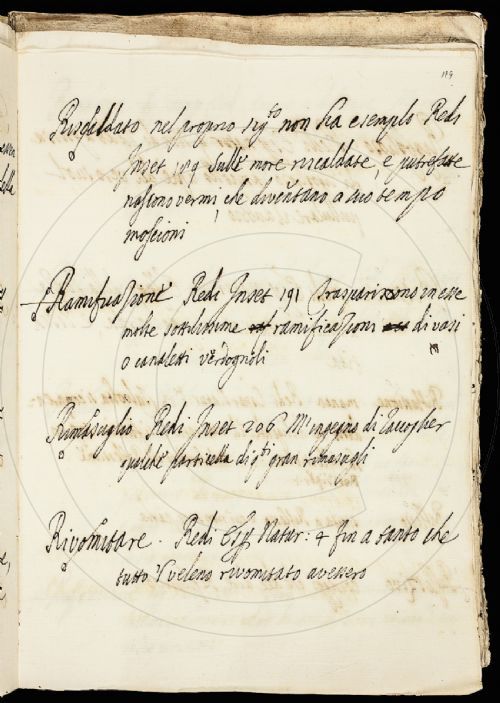 119
Riscaldato nel proprio sigto non ha esempio Redi
Inset 189 Sulle more riscaldate, e putrefatte
nascono vermi, che diventano a suo tempo
moscioni
Ramificazione Redi Inset 191 trasparirono in esse
molte sottilissime ramificazioni di vasi
o canaletti verdognoli
Rimasuglio Redi Inset 206 M'ingegno di raccoglier
qualche particella di qti gran rimasugli
Rivomitare. Redi Natur: 4 fin a tanto che
tutto 'l veleno rivomitato avessero